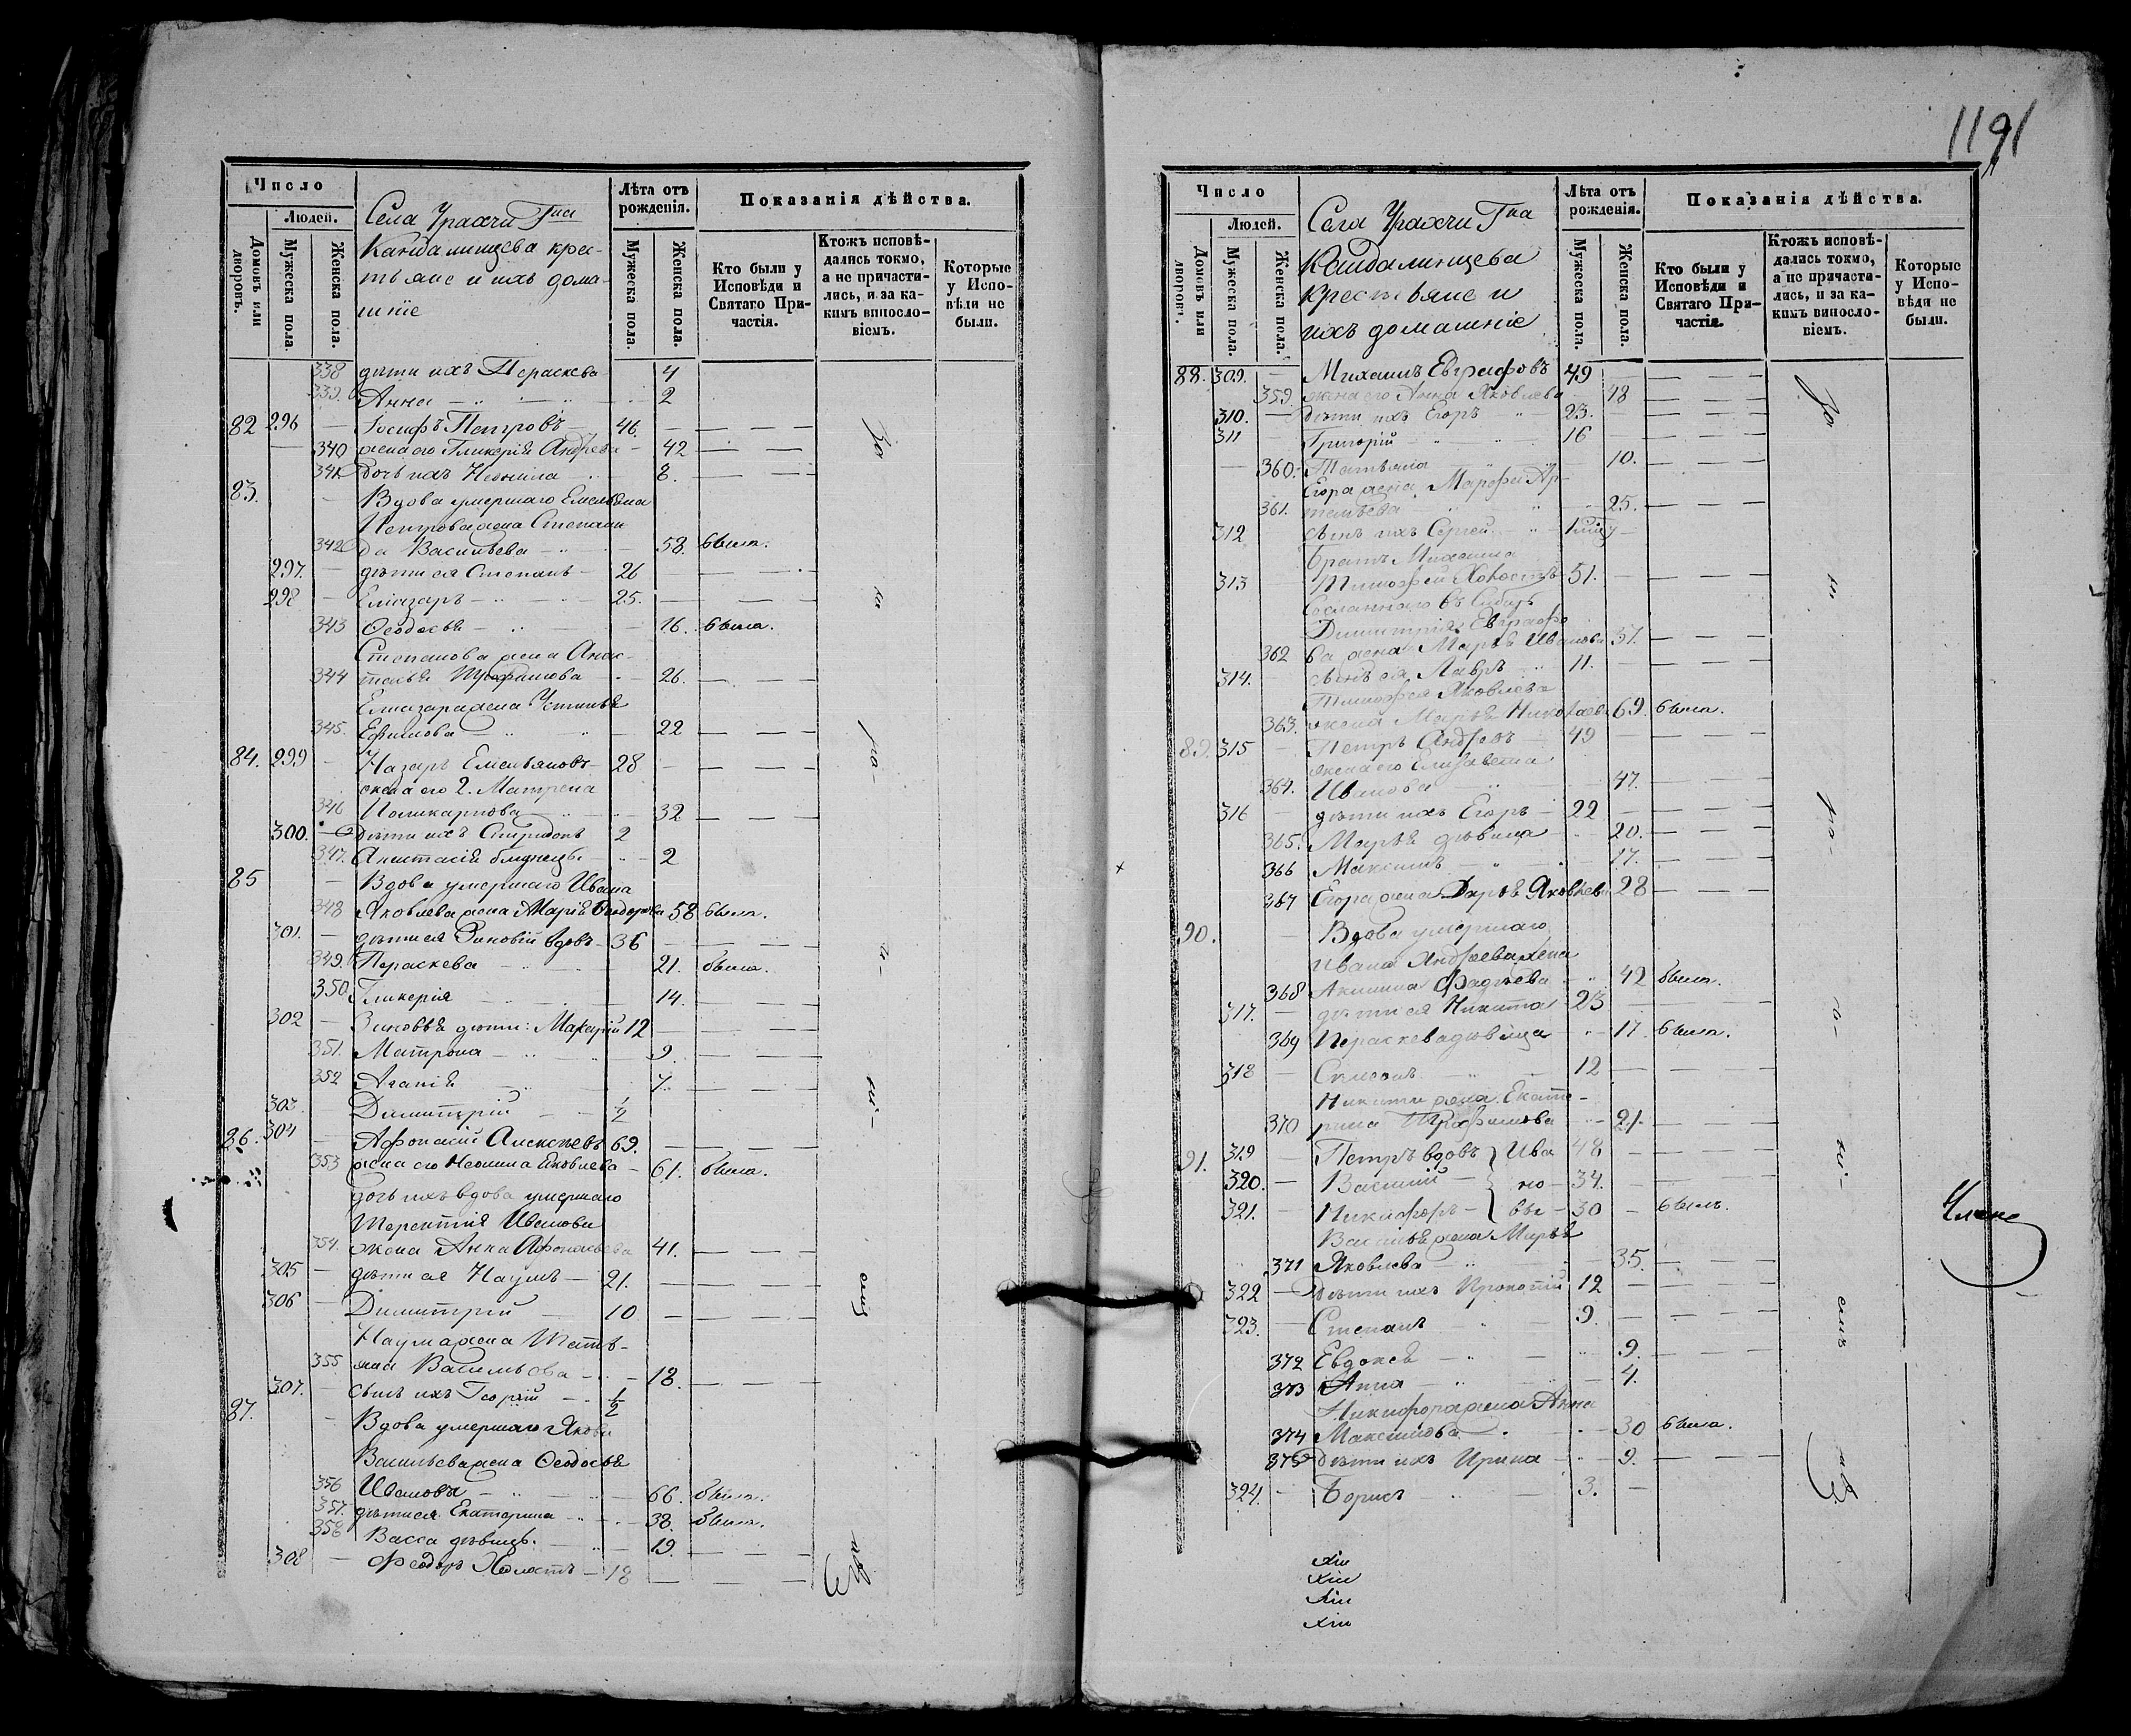 Число
Людей.
Домовъ или дворовъ.
Мужеска пола.
Женска пола.
Села Урахчи Г<sup>на</sup>
Кандалинцева крес-
тьяне и ихъ дома-
шніе
Лѣта отъ рожденія.
Мужеска пола.
Женска пола.
Показанія дѣйства.
Кто были у Исповѣди и Святаго При-частія.
Ктожъ исповѣ-дались токмо, а не причасти-лись, и за ка-кимъ винослo-віемъ.
Которые у Испо-вѣди не были.
338 дѣти ихъ Параскева 4
339. Анна 2
82 296 Іосифъ Петровъ 46.
340 жена его Гликерія Андрева 42
341 дочь ихъ Неонила 8.
83. Вдова умершаго Емельяна
Петрова жена Степани
342 да Васильева 58. была.
297. дѣти ея Степанъ 26
298 Елiазаръ 25.
343 Ѳеодосья 16. была.
Степанова жена Анас-
344 тасья Трофимова 26.
Елиазара жена Устинья
345. Ефимова 22
84. 299 Назаръ Емельяновъ 28
жена его 2. Матрена
346 Поликарпова 32
300. дѣти ихъ Спиридонъ 2
347. Анастасія близнецы 2
85 Вдова умершаго Ивана
348 Яковлева жена Марія Ѳедорова 58 была.
301. дѣти ея Зиновій вдовъ 36
349. Параскева 21. была.
350 Гликерія 14.
302 Зиновья дѣти: Макарій 12
351. Матрона 9.
352 Агапія 7.
303 Димитрій 1/2
86. 304 Афонасій Алексѣевъ 69.
353 жена его Неонила Яковлева 61. была.
дочь ихъ вдова умершаго
Терентія Иванова
354. жена Анна Афонасьева 41.
305 дѣти ея Наумъ 21.
306 Димитрій 10
Наума жена Татья-
355 на Васильева 18.
307. сынъ ихъ Георгій 1/2
87. Вдова умершаго Якова
Васильева жена Ѳеодосья
356 Иванова 66. была.
357. дѣти ея Екатерина 38. была.
358 Васса дѣвица. 19.
308 Феодоръ Холостъ 18
За
1191
Число
Людей.
Домовъ или дворовъ.
Мужеска пола.
Женска пола.
Села Урахчи Г<sup>на</sup>
Кандалинцева
крестьяне и
ихъ домашніе
Лѣта отъ рожденія.
Мужеска пола.
Женска пола.
Показанія дѣйства.
Кто были у Исповѣди и Святаго При-частія.
Ктожъ исповѣ-дались токмо, а не причасти-лись, и за ка-кимъ винослo-віемъ.
Которые у Испо-вѣди не были.
88. 309. Михаилъ Евграфовъ 49
359. жена его Анна Яковлева 48
310. дѣти ихъ Егоръ 23.
311 Григорій 16
360. Татьяна 10.
Егора жена Марфа Ар-
361. темьева 25.
312 сынъ ихъ Сергей
Братъ Михаила
313 Тимофей Холостъ 51.
Сосланнаго въ Сибирь
Димитрія Евграфо
362 ва жена Марья Иванова 37.
314. сынъ ея Лавръ 11.
Тимофея Яковлева
363. жена Марья Николаева 69. была.
89. 315 Петръ Андреевъ 49
жена его Елизавета
364. Иванова 47.
316 дѣти ихъ Егоръ 22
365. Марья дѣвица 20.
366 17.
367 Егора жена Дарья Яковлева 28
90. Вдова умершаго
Ивана Андреева жена
368 Акилина Фадѣева 42 была.
317. дѣти ея Никита 23
369 Параскева дѣвица 17 была.
318 Симеонъ 12
Никиты жена Екате-
370 рина Трофимова 21
91. 319 Петръ вдовъ } Ива 48
320. Василій } но 34.
321. Никифоръ } вы 30 былъ.
Василья жена Марья
371 Яковлева 35.
322 дѣти ихъ Прокопій 12
323. Степанъ 9.
372 Евдокея 9.
373 Анна 4.
Никифора жена Анна
374 Максимова 30 была.
375 дѣти ихъ Ирина 9.
324. Борисъ 3.
За